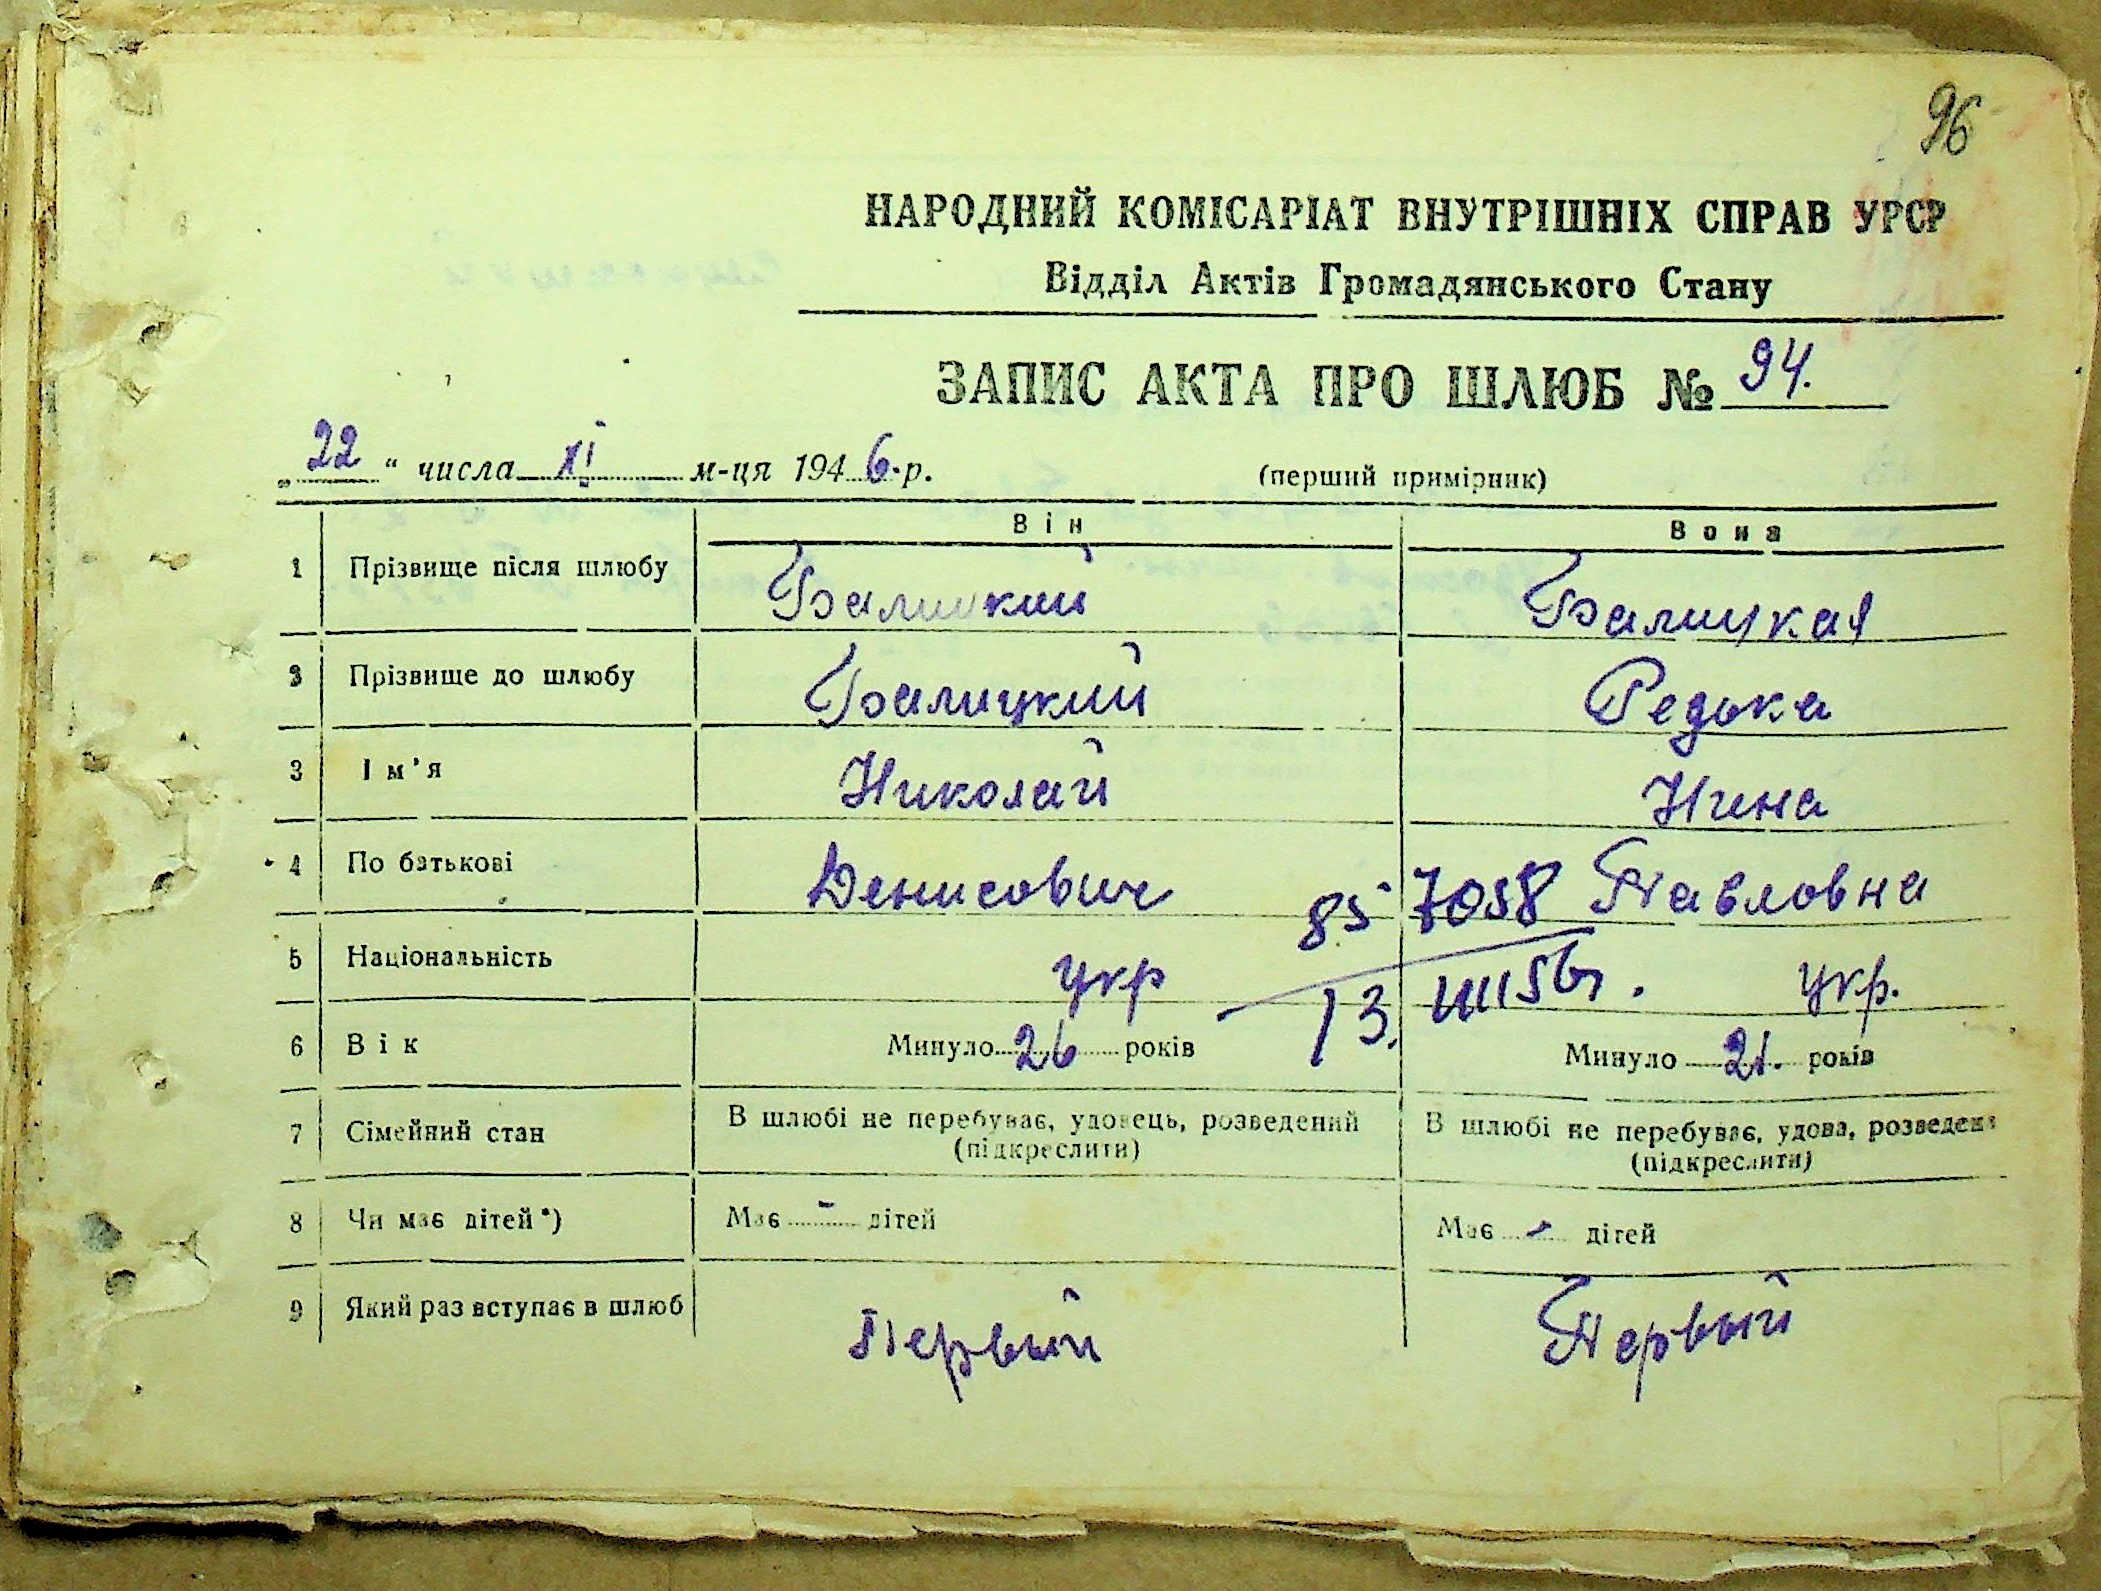 96
НАРОДНИЙ КОМІСАРІАТ ВНУТРІШНІХ СПРАВ УРСР
Відділ Актів Громадянського Стану
ЗАПИС АКТА ПРО ШЛЮБ № 94.
„22“ числа XI м-ця 1946 р. (перший примірник)
Він Вона
1 Прізвище після шлюбу Балицкий Балицкая
3 Прізвище до шлюбу Балицкий Редька
3 Ім'я Николай Нина
4 По батькові Денисович 85 7058 Павловна
5 Національність укр укр.
13. III 56г.
6 Вік Минуло 26 років Минуло 21. років
7 Сімейний стан В шлюбі не перебуває, удовець, розведений В шлюбі не перебуває, удова, розведена
(підкреслити) (підкреслити)
8 Чи має дітей*) Має - дітей Має - дітей
9 Який раз вступає в шлюб Первый Первый